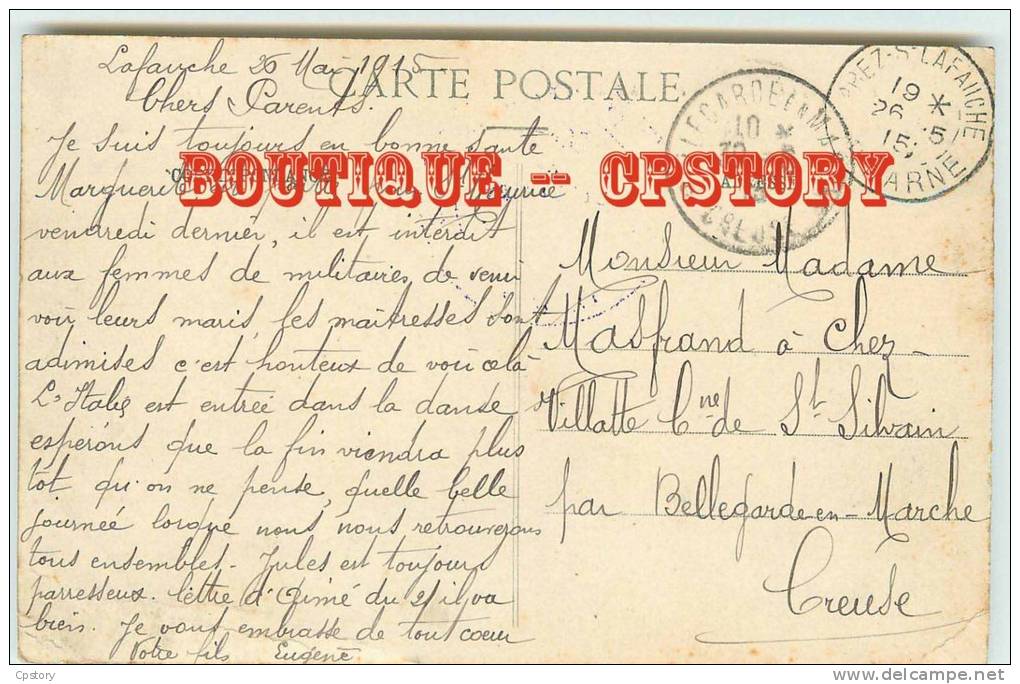 Lafauche 26 Mai 1915
Chers Parents.
CARTE POSTALE
Je suis toujours en bonne santé
Marguerite
vendredi dernier, il est interdit
aux femmes de militaires de venir
voir leurs maris, les maitresses sont
admises c'est honteux de voir celà
L'Italie est entrée dans la danse
espérons que la fin viendra plus
tot qu'on ne pense, quelle belle
journée lorsque nous nous retrouverons
tous ensembles. Jules est toujours
parresseux. lettre d'Aimé du 21 il va
bien. Je vous embrasse de tout coeur
Votre fils Eugène
PREZ-S-LAFAUCHE
19 *
26 -5
15
MARNE
10 *
CREUSE
BOUTIQUE -- CPSTORY
Monsieur Madame
Masfrand à Chez-
Villatte Cne de St Silvain
par Bellegarde-en-Marche
Creuse
Cpstory
delcampe.net